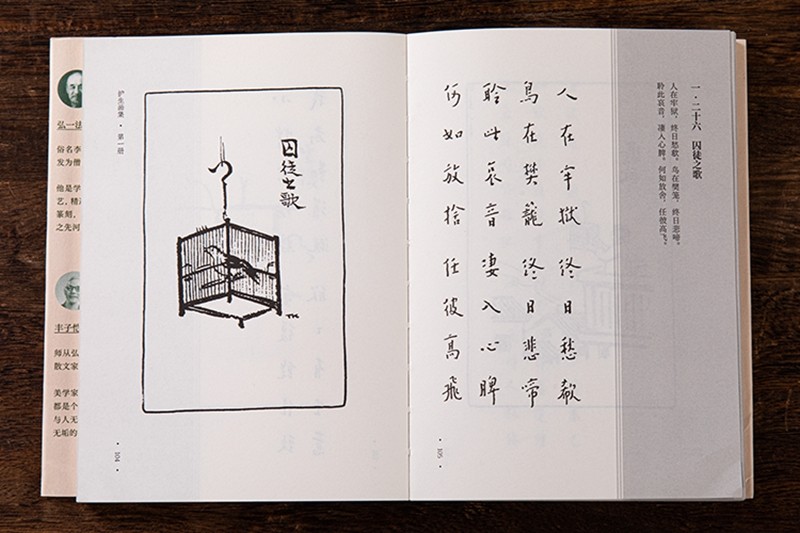 弘一法
俗名李
发为僧
他是学
艺，精
篆刻，
之先河
丰子恺
师从弘
散文家
美学家
都是个
与人无
无垢的
护生画集·第一册
囚徒之歌
TK
·104·
人在牢獄終日愁欷
鳥在樊籠終日悲啼
聆此哀音凄入心脾
何如放捨任彼高飛
·105·
一·二十六 囚徒之歌
人在牢狱，终日愁欷。鸟在樊笼，终日悲啼。
聆此哀音，凄入心脾。何如放舍，任彼高飞。